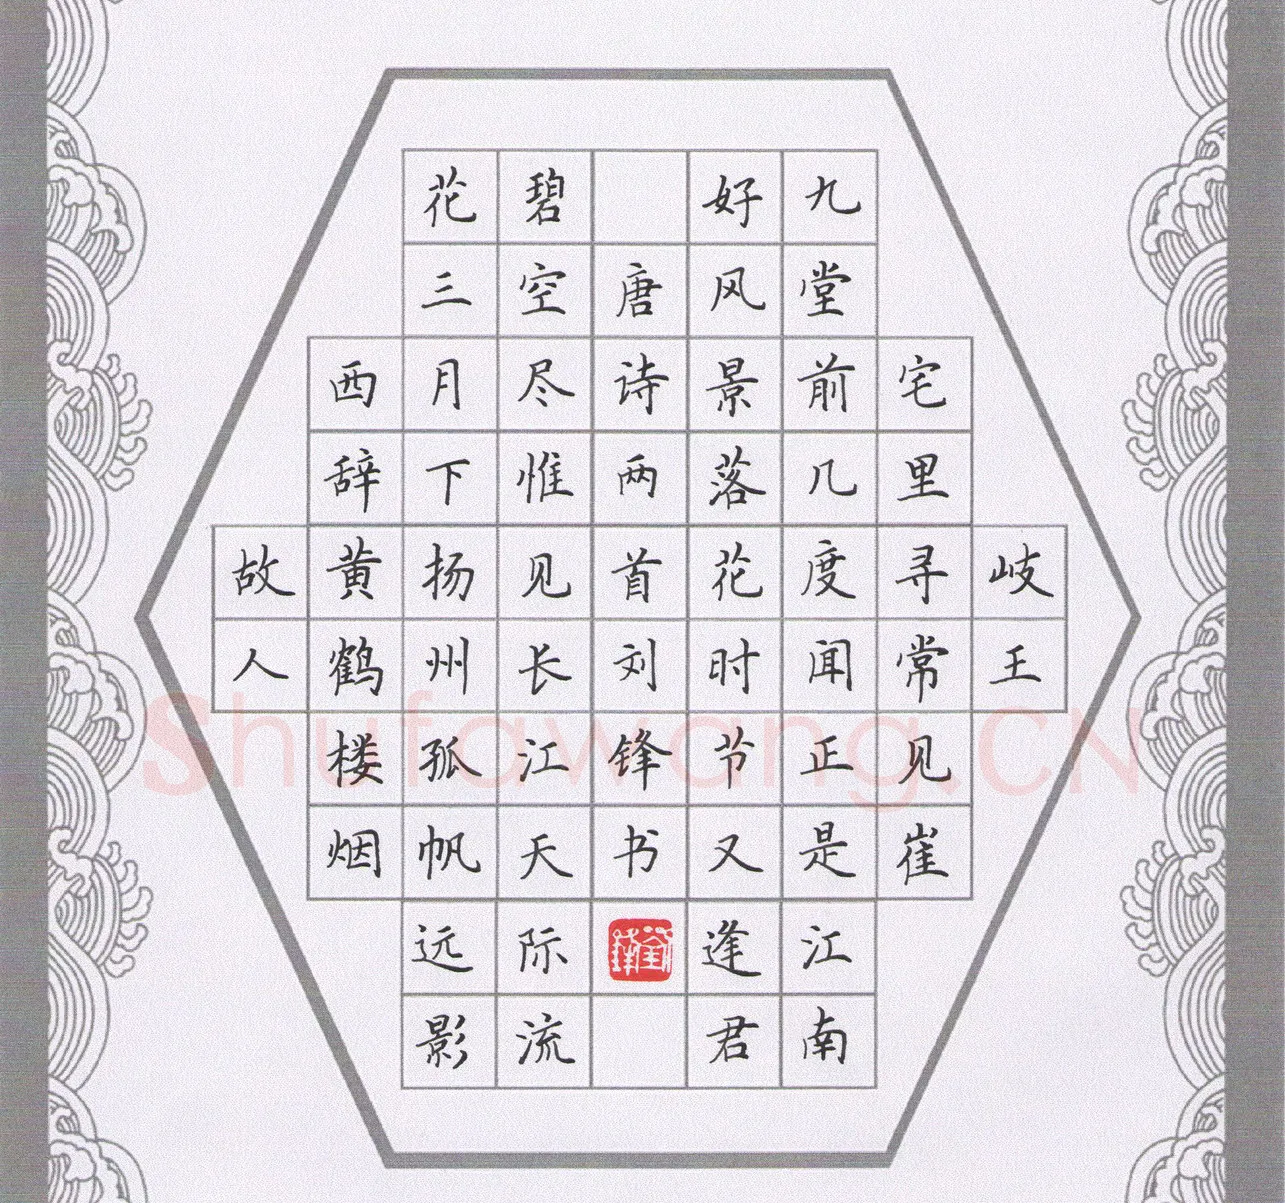 岐王
宅里寻常见崔
九堂前几度闻正是江南
好风景落花时节又逢君
唐诗两首刘锋书
碧空尽惟见长江天际流
花三月下扬州孤帆远影
西辞黄鹤楼烟
故人
Shufawang.CN